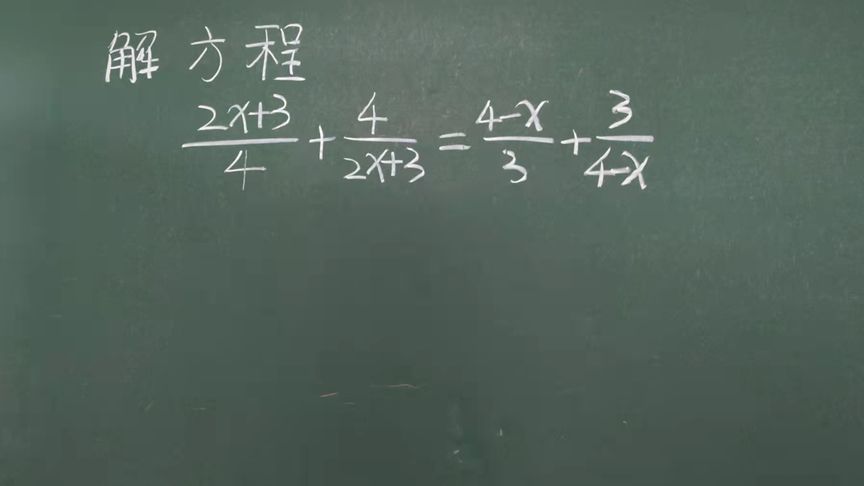 解方程
(2x+3)/4 + 4/(2x+3) = (4-x)/3 + 3/(4-x)